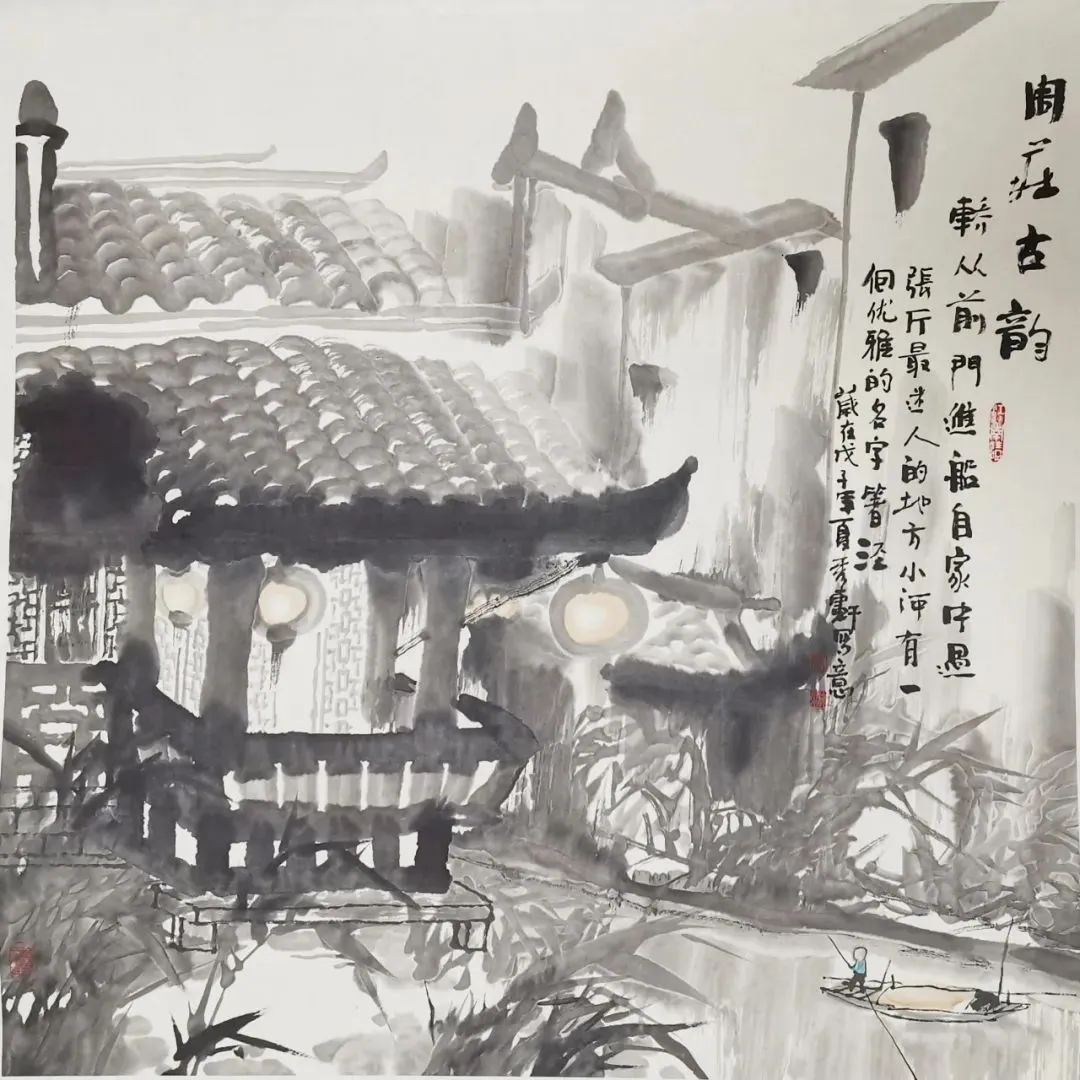 周莊古韵
轿从前門進船自家中過
張厅最迷人的地方小河有一
個优雅的名字箸泾
歲在戊子年夏秀軒写意